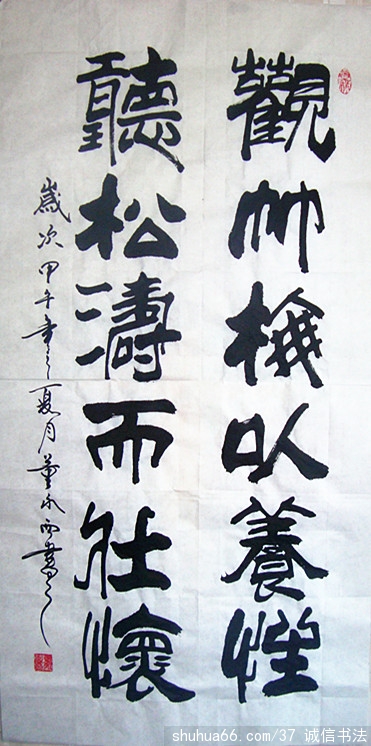 觀竹梅以養性
聽松濤而壯懷
歲次甲午年之夏月董永書之
shuhua66.com/37 诚信书法